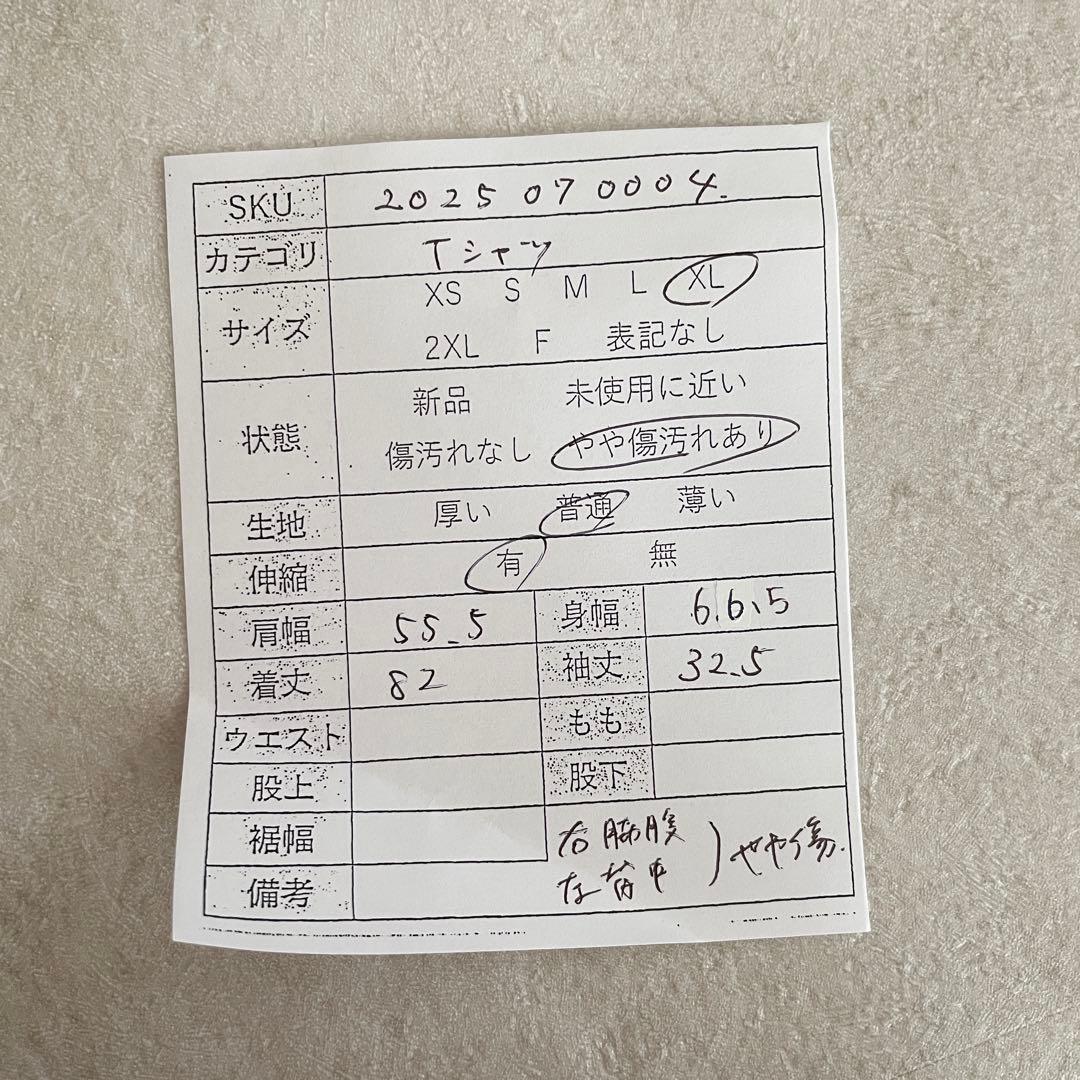 SKU 2025070004.
カテゴリ Tシャツ
サイズ XS S M L XL
2XL F 表記なし
状態 新品 未使用に近い
傷汚れなし やや傷汚れあり
生地 厚い 普通 薄い
伸縮 有 無
肩幅 55.5 身幅 66.5
着丈 82 袖丈 32.5
ウエスト もも
股上 股下
裾幅 右脇腹
左背中 ) やや傷.
備考